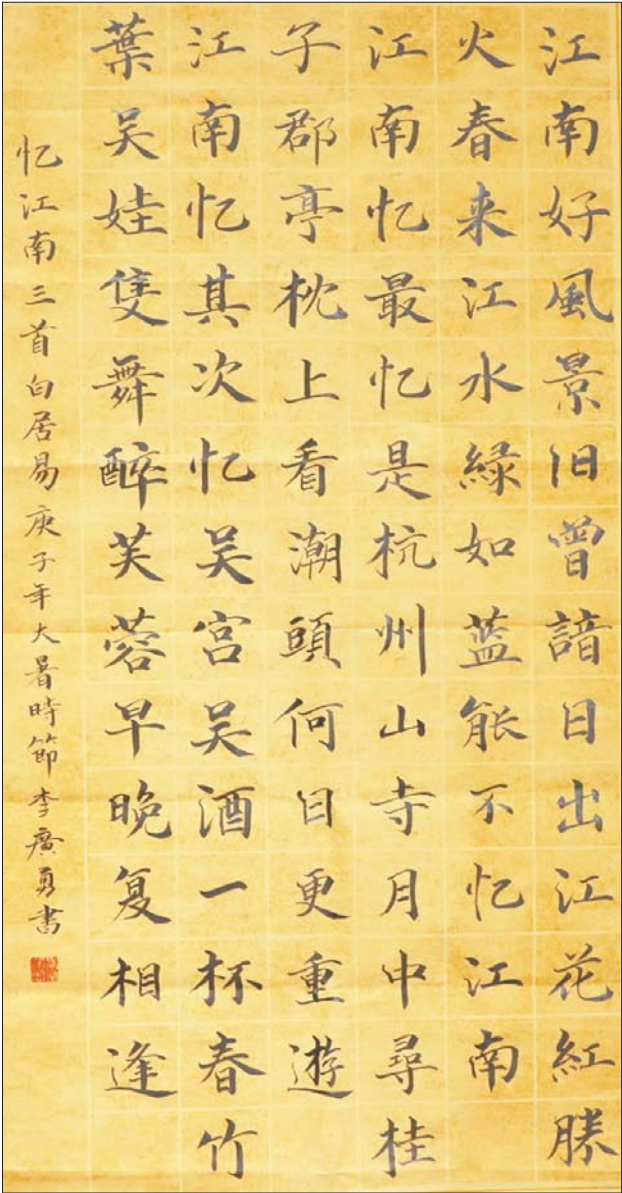 江南好風景旧曾諳日出江花紅勝
火春来江水緑如藍能不忆江南
江南忆最忆是杭州山寺月中尋桂
子郡亭枕上看潮頭何日更重遊
江南忆其次忆吴宫吴酒一杯春竹
葉吴娃隻舞醉芙蓉早晚复相逢
忆江南三首白居易庚子年大暑時節李廣勇書